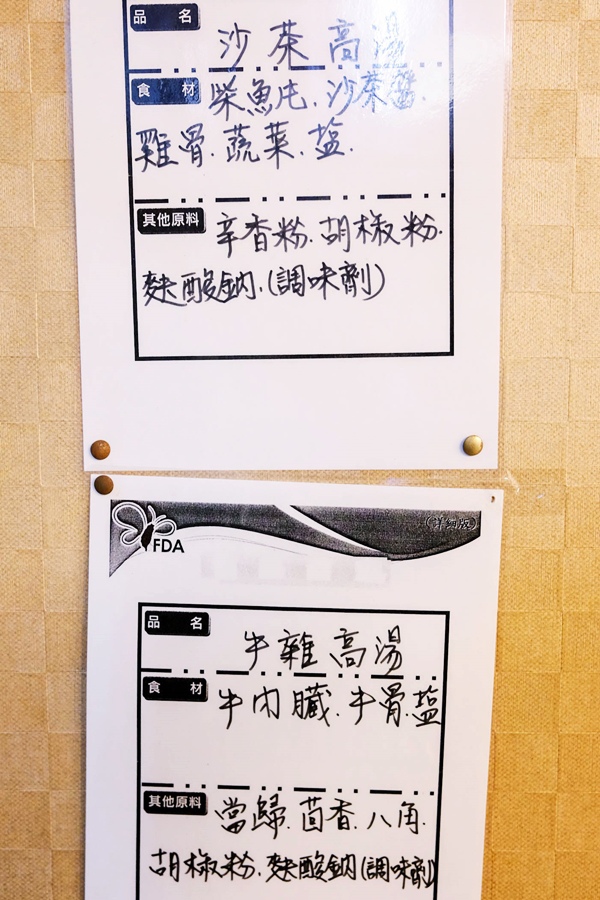 品名 沙茶高湯
食材 柴魚片.沙茶醬.
雞骨.蔬菜.塩.
其他原料 辛香粉.胡椒粉.
麩酸鈉.(調味劑)
(詳細版)
FDA
品名 牛雜高湯
食材 牛內臟.牛骨.塩
其他原料 當歸.茴香.八角.
胡椒粉.麩酸鈉(調味劑)